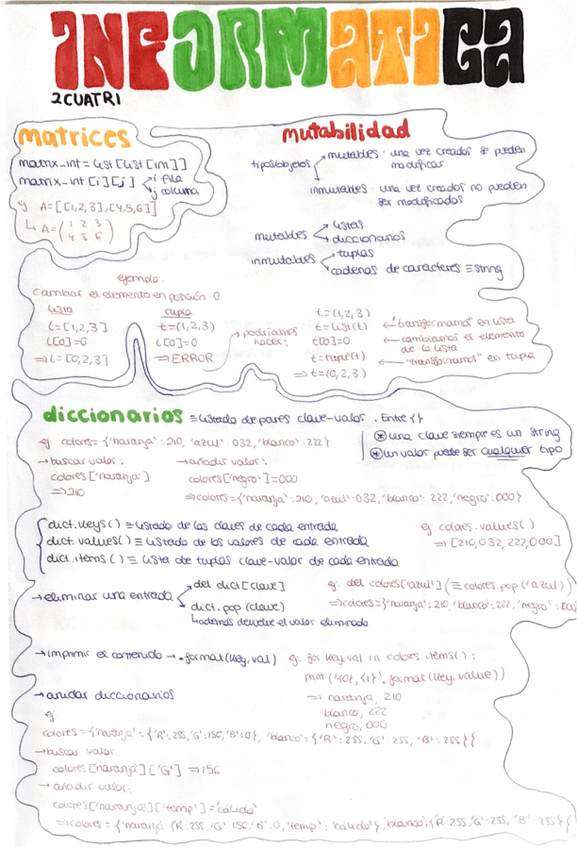 INFORMATICA
2CUATRI
matrices
matrix_int = list[list[int]]
matrix_int[i][j] i fila
j columna
ej A=[[1,2,3],[4,5,6]]
↳ A=(1 2 3
4 5 6)
mutabilidad
tipos/objetos
mutables - una vez creados se pueden
modificar
inmutables - una vez creados no pueden
ser modificados
mutables
listas
diccionarios
inmutables
tuplas
cadenas de caracteres ≡ string
ejemplo:
cambiar el elemento en posición 0
lista
l=[1,2,3]
l[0]=0
⇒l=[0,2,3]
tupla
t=(1,2,3)
t[0]=0
⇒ERROR
podríamos
hacer:
t=(1,2,3)
t=list(t) ← "transformamos" en lista
t[0]=0 ← cambiamos el elemento
de la lista
t=tuple(t) ← "transformamos" en tupla
⇒t=(0,2,3)
diccionarios ≡ listado de pares clave-valor. Entre {}
* una clave siempre es un string
* un valor puede ser cualquier tipo
ej colores={'naranja':210, 'azul':032, 'blanco':222}
→buscar valor:
colores['naranja']
⇒210
→añadir valor:
colores['negro']=000
⇒colores={'naranja':210, 'azul':032, 'blanco':222, 'negro':000}
dict.keys() ≡ listado de las claves de cada entrada
dict.values() ≡ listado de los valores de cada entrada
dict.items() ≡ lista de tuplas clave-valor de cada entrada
ej: colores.values()
⇒ [210,032,222,000]
→eliminar una entrada
del dict[clave]
dict.pop(clave)
↳además devuelve el valor eliminado
ej: del colores['azul'] (≡colores.pop('azul'))
⇒colores={'naranja':210, 'blanco':222, 'negro':000
→imprimir el contenido → .format(key,val)
ej. for key,val in colores.items():
print('{0},{1}'.format(key,value))
⇒ naranja, 210
blanco, 222
negro, 000
→anidar diccionarios
ej
colores={'naranja':{'R':255,'G':156,'B':0}, 'blanco':{'R':255,'G':255,'B':255}}
→buscar valor:
colores['naranja']['G'] ⇒156
→añadir valor:
colores['naranja']['temp']='cálido'
⇒colores={'naranja':{'R':255,'G':156,'B':0,'temp':'cálido'},'blanco':{'R':255,'G':255,'B':255}}